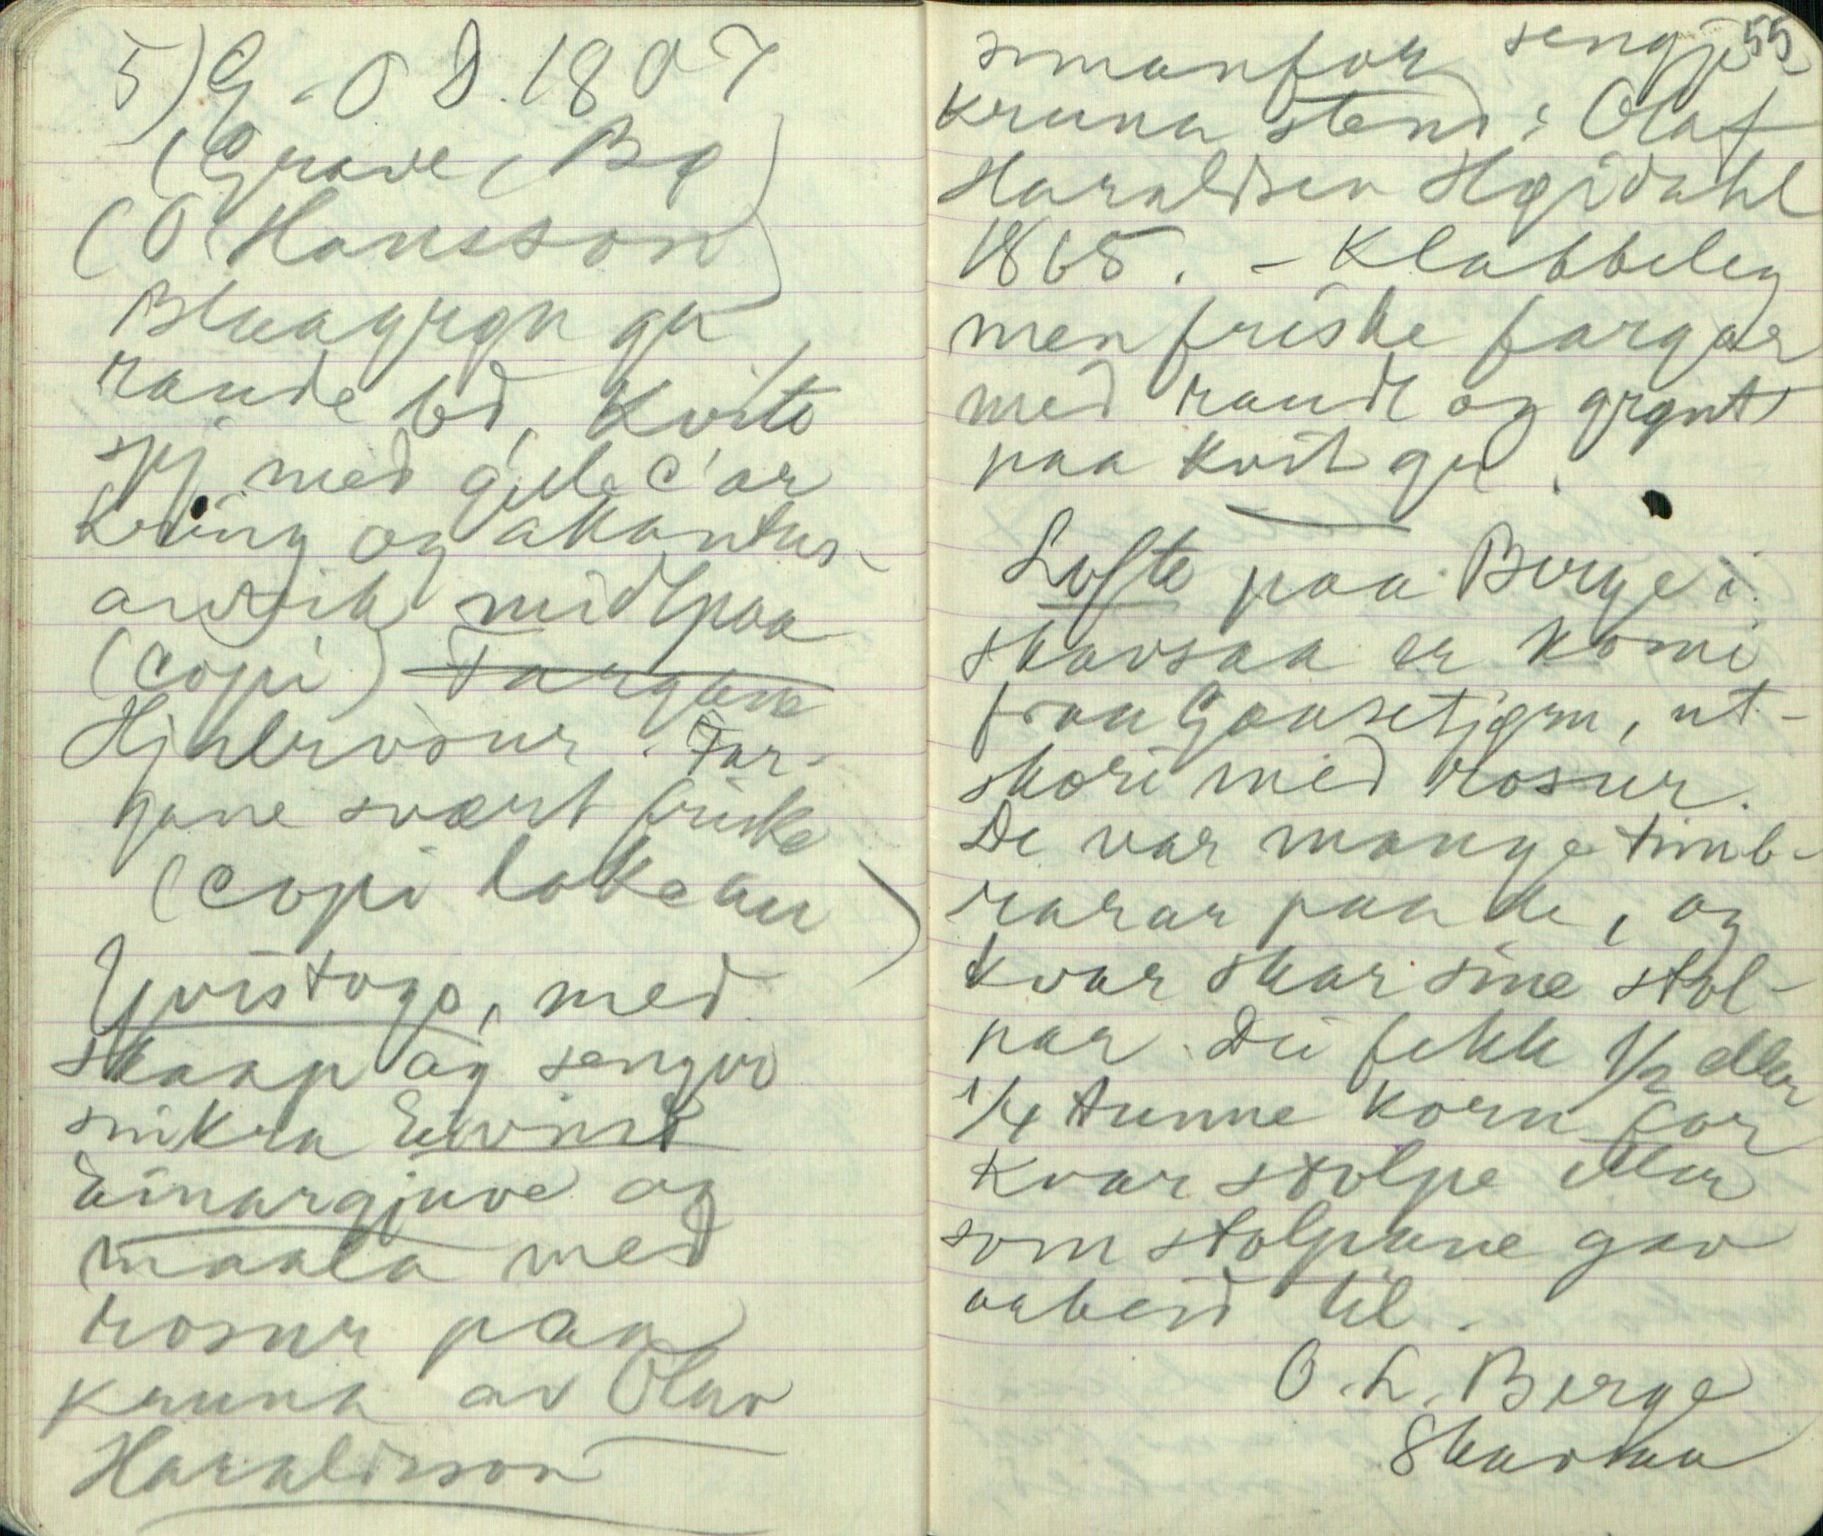 5) G. O D. 1807
(Grave, Bø)
(O. Hansson)
Blaagrøn gr
raude bd, Kvite
spj med gule c'ar
kring og akantus-
midtpaa
(copi) Fargane
Hjulrosur. Far-
gane svært friske
(copi
Yvistogo, med
skaap og sengir
snikra Eivind
Einargjuve og
maala med
rosur paa
kruna av Olav
Haraldsson
55
innanfor sengje
kruna stend: Olaf
Haraldsen Høidahl
1865. - Klabbeleg
men friske fargar
med raudt og grønt
paa kvit gr.
Lofte paa Berge i
Skavsaa er komi
fraa Gaasetjønn, ut-
skori med rosur.
De var mange timb-
rarar paa de, og
kvar skar sine stol-
par. Dei fekk 1/2 eller
1/4 tunne korn for
kvar stolpe etter
som stolpane gav
arbeid til.
O. L. Berge
Skavsaa